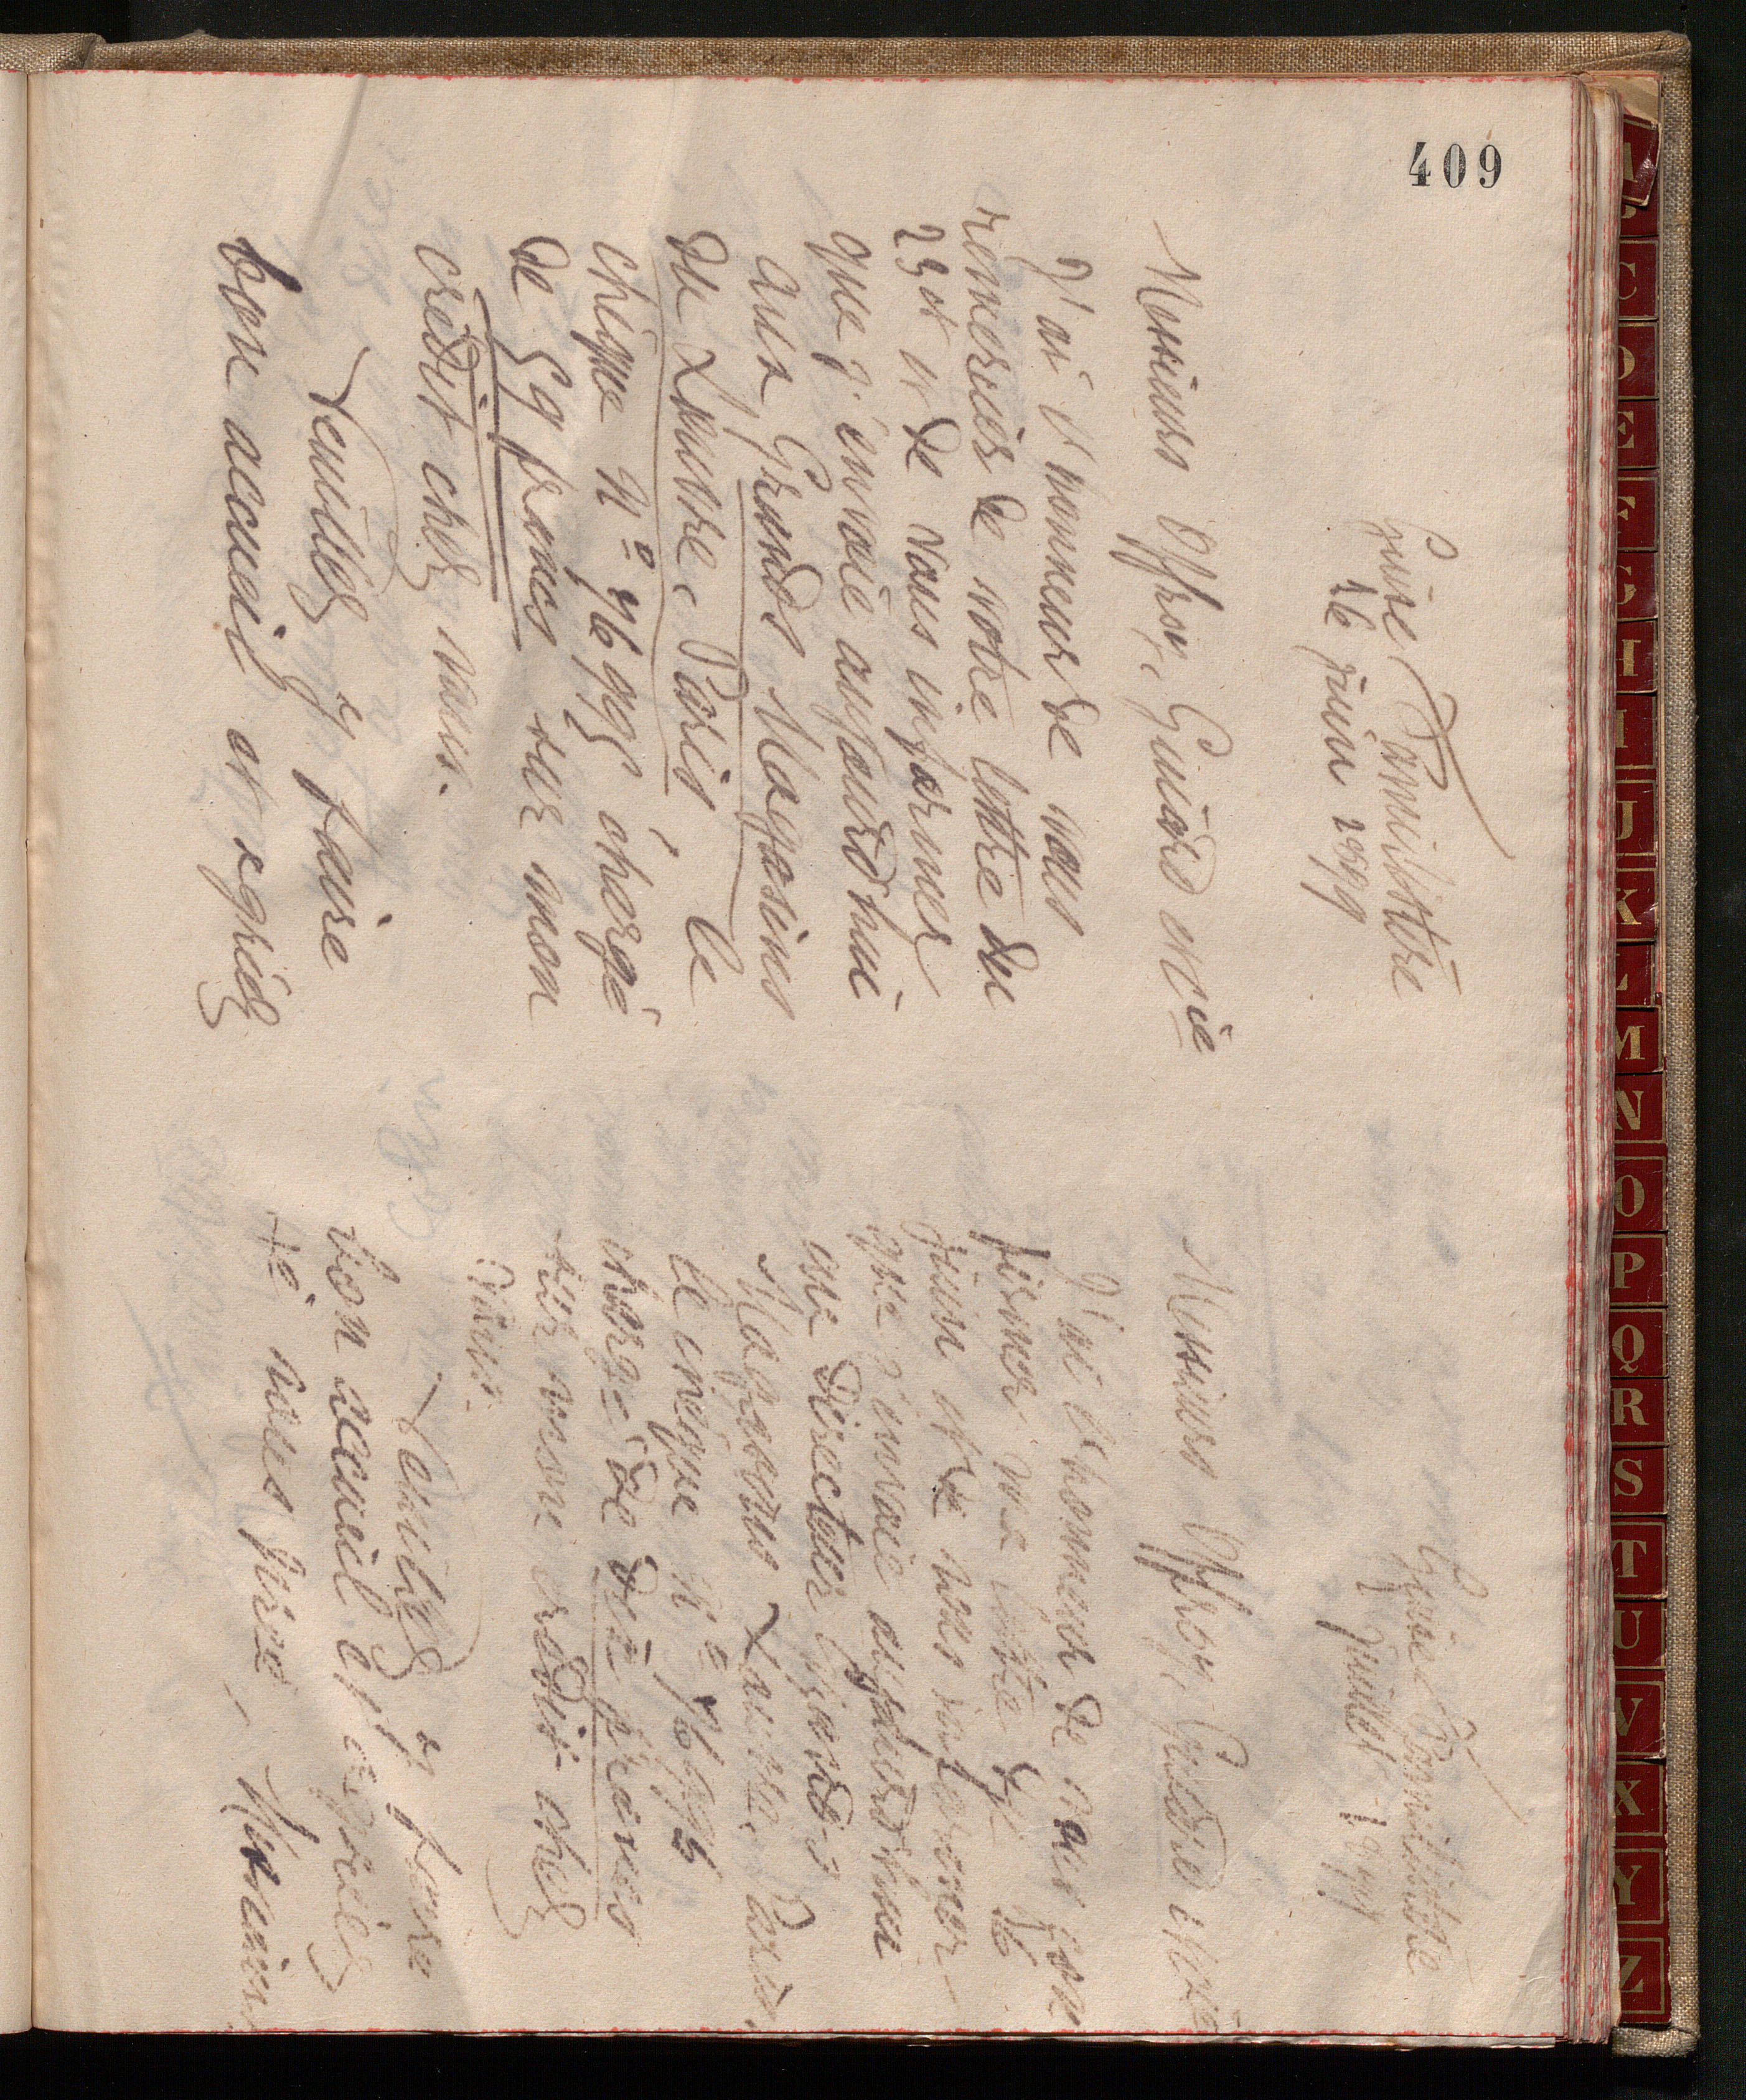 409
Guise Familistère
16 juin 1899
Messieurs Offroy, Guiard et Cie
J'ai l'honneur de vous
remercier de votre lettre du
23 et de vous informer
que j'envoie aujourd'hui
aux Grands Magasins
du Louvre, Paris le
chèque N° chargé
de 59 francs sur mon
crédit chez vous.
Veuillez y faire
bon accueil et agréez
Guise Familistère
Juillet
Messieurs Offroy, Guiard et Cie
J'ai l'honneur de vous con
firmer ma lettre du 16
juin et de vous informer
que j'envoie aujourd'hui
au Directeur Grands
Magasins Louvre, Paris,
le chèque N°
chargé de francs
sur mon crédit chez
vous.
Veuillez y faire
bon accueil et agréez
vous prie, Messieurs,
A
C
D
E
F
H
I
J
K
L
M
N
O
P
Q
R
S
T
U
V
X
Y
Z